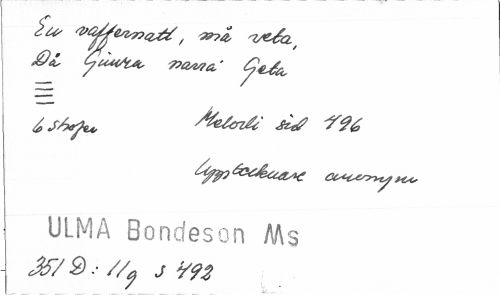 En vaffernatt, må veta,
Då Giura narra Geta
6 strofer
Melodi sid 496
Upptecknare anonym
ULMA Bondeson Ms
351 D: 11g s 492